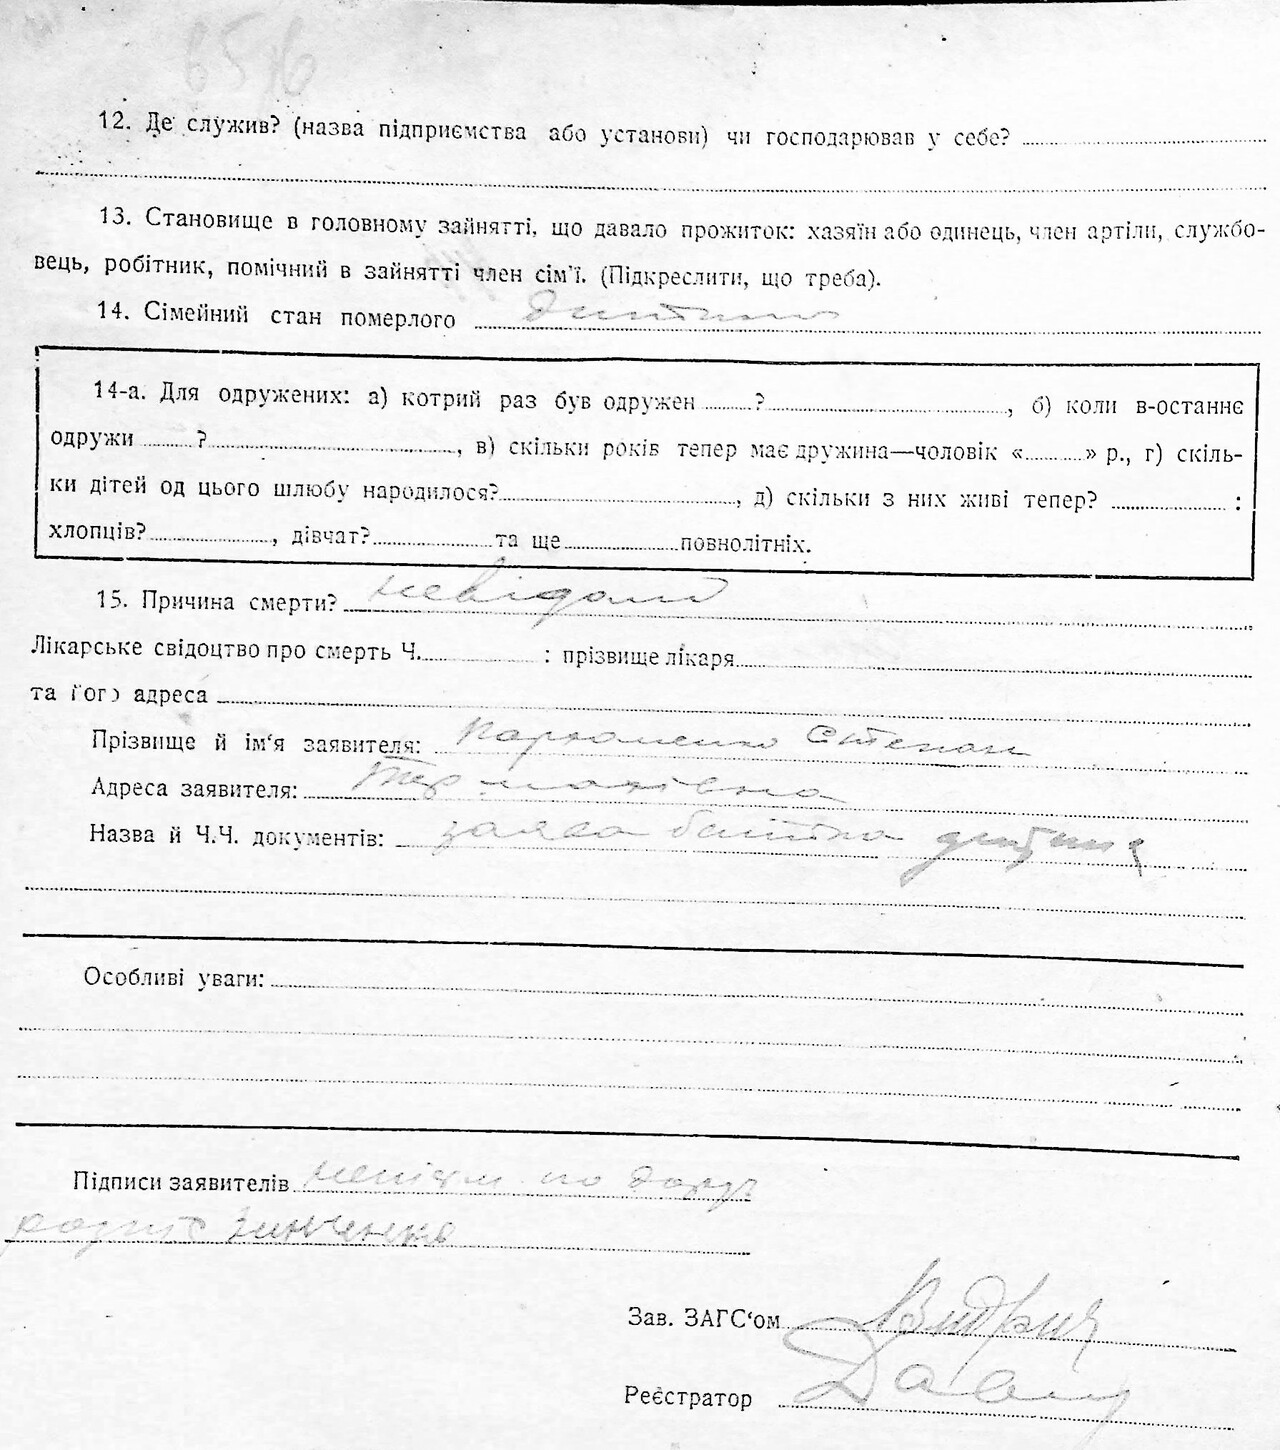 12. Де служив? (назва підприємства або установи) чи господарював у себе?
13. Становище в головному зайнятті, що давало прожиток: хазяїн або одинець, член артіли, службо-
вець, робітник, помічний в зайнятті член сім'ї. (Підкреслити, що треба).
14. Сімейний стан померлого дитина
14-а. Для одружених: а) котрий раз був одружен ? , б) коли в-останнє
одружи ? , в) скільки років тепер має дружина—чоловік « » р., г) скіль-
ки дітей од цього шлюбу народилося? , д) скільки з них живі тепер? :
хлопців? , дівчат? та ще повнолітніх.
15. Причина смерти? невідома
Лікарське свідоцтво про смерть Ч. : прізвище лікаря
та його адреса
Прізвище й ім'я заявителя: Пархоменко Степан
Адреса заявителя:
Назва й Ч.Ч. документів: заява батька дитини
Особливі уваги:
Підписи заявителів по
Зинченко
Зав. ЗАГС'ом
Реєстратор